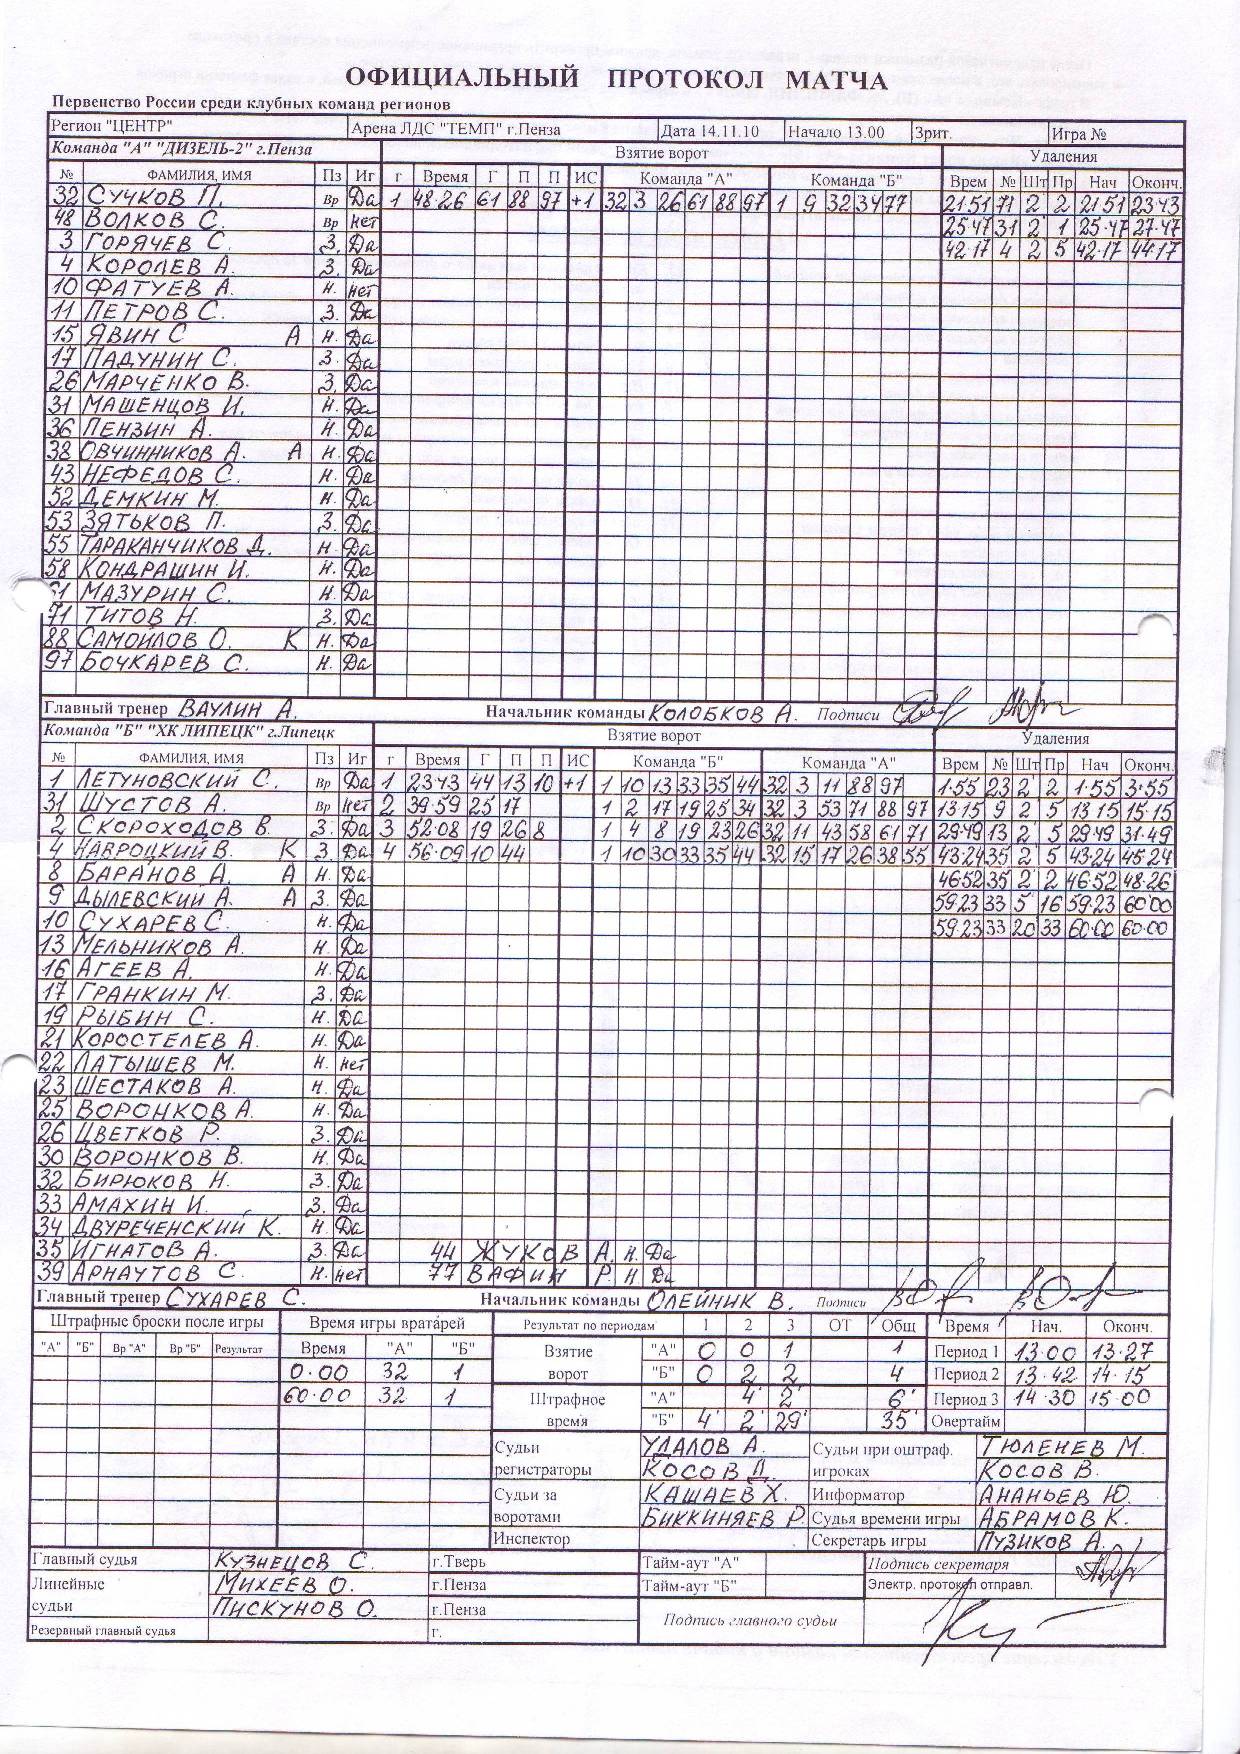 ОФИЦИАЛЬНЫЙ ПРОТОКОЛ МАТЧА
Первенство России среди клубных команд регионов
Регион "ЦЕНТР" Арена ЛДС "ТЕМП" г.Пенза Дата 14.11.10 Начало 13.00 Зрит. Игра №
Команда "А" "ДИЗЕЛЬ-2" г.Пенза Взятие ворот Удаления
№ ФАМИЛИЯ, ИМЯ Пз Иг г Время Г П П ИС Команда "А" Команда "Б" Врем № Шт Пр Нач Оконч.
32 СУЧКОВ П. Вр Да 1 48·26 61 88 97 +1 32 3 26 61 88 97 1 9 32 34 77 21·51 71 2 2 21·51 23·43
48 ВОЛКОВ С. Вр Нет 25·47 31 2 1 25·47 27·47
3 ГОРЯЧЕВ С. З. Да 42·17 4 2 5 42·17 44·17
4 КОРОЛЕВ А. З. Да
10 ФАТУЕВ А. Н. Нет
11 ПЕТРОВ С. З. Да
15 ЯВИН С А Н. Да
17 ПАДУНИН С. З. Да
26 МАРЧЕНКО В. З. Да
31 МАШЕНЦОВ И. Н. Да
36 ПЕНЗИН А. Н. Да
38 ОВЧИННИКОВ А. А Н. Да
43 НЕФЕДОВ С. Н. Да
52 ДЕМКИН М. Н. Да
53 ЗЯТЬКОВ П. З. Да
55 ТАРАКАНЧИКОВ Д. Н. Да
58 КОНДРАШИН И. Н. Да
61 МАЗУРИН С. Н. Да
71 ТИТОВ Н. З. Да
88 САМОЙЛОВ О. К Н. Да
97 БОЧКАРЕВ С. Н. Да
Главный тренер ВАУЛИН А. Начальник команды КОЛОБКОВ А. Подписи
Команда "Б" "ХК ЛИПЕЦК" г.Липецк Взятие ворот Удаления
№ ФАМИЛИЯ, ИМЯ Пз Иг г Время Г П П ИС Команда "Б" Команда "А" Врем № Шт Пр Нач Оконч.
1 ЛЕТУНОВСКИЙ С. Вр Да 1 23·43 44 13 10 +1 1 10 13 33 35 44 32 3 11 88 97 1·55 23 2 2 1·55 3·55
31 ШУСТОВ А. Вр Нет 2 39·59 25 17 1 2 17 19 25 34 32 3 53 71 88 97 13·15 9 2 5 13·15 15·15
2 СКОРОХОДОВ В. З. Да 3 52·08 19 26 8 1 4 8 19 23 26 32 11 43 58 61 71 29·49 13 2 5 29·49 31·49
4 НАВРОЦКИЙ В. К З. Да 4 56·09 10 44 1 10 30 33 35 44 32 15 17 26 38 55 43·24 35 2 5 43·24 45·24
8 БАРАНОВ А. А Н. Да 46·52 35 2 2 46·52 48·26
9 ДЫЛЕВСКИЙ А. А З. Да 59·23 33 5 16 59·23 60·00
10 СУХАРЕВ С. Н. Да 59·23 33 20 33 60·00 60·00
13 МЕЛЬНИКОВ А. Н. Да
16 АГЕЕВ А. Н. Да
17 ГРАНКИН М. З. Да
19 РЫБИН С. Н. Да
21 КОРОСТЕЛЕВ А. Н. Да
22 ЛАТЫШЕВ М. Н. Нет
23 ШЕСТАКОВ А. Н. Да
25 ВОРОНКОВ А. Н. Да
26 ЦВЕТКОВ Р. З. Да
30 ВОРОНКОВ В. Н. Да
32 БИРЮКОВ Н. З. Да
33 АМАХИН И. З. Да
34 ДВУРЕЧЕНСКИЙ К. Н. Да
35 ИГНАТОВ А. З. Да 44 ЖУКОВ А. Н. Да
39 АРНАУТОВ С. Н. Нет 77 ВАФИН Р. Н Да
Главный тренер СУХАРЕВ С. Начальник команды ОЛЕЙНИК В. Подписи
Штрафные броски после игры Время игры вратарей Результат по периодам 1 2 3 ОТ Общ Время Нач. Оконч.
"А" "Б" Вр "А" Вр "Б" Результат Время "А" "Б" Взятие ворот "А" 0 0 1 1 Период 1 13·00 13·27
0·00 32 1 "Б" 0 2 2 4 Период 2 13·42 14·15
60·00 32 1 Штрафное время "А" 4' 2' 6' Период 3 14·30 15·00
"Б" 4' 2' 29' 35' Овертайм
Судьи регистраторы УДАЛОВ А. Судьи при оштраф. игроках ТЮЛЕНЕВ М.
КОСОВ Д. КОСОВ В.
Судьи за воротами КАШАЕВ Х. Информатор АНАНЬЕВ Ю.
БИККИНЯЕВ Р. Судья времени игры АБРАМОВ К.
Инспектор Секретарь игры ПУЗИКОВ А.
Главный судья КУЗНЕЦОВ С. г.Тверь Тайм-аут "А" Подпись секретаря
Линейные судьи МИХЕЕВ О. г.Пенза Тайм-аут "Б" Электр. протокол отправл.
ПИСКУНОВ О. г.Пенза Подпись главного судьи
Резервный главный судья г.